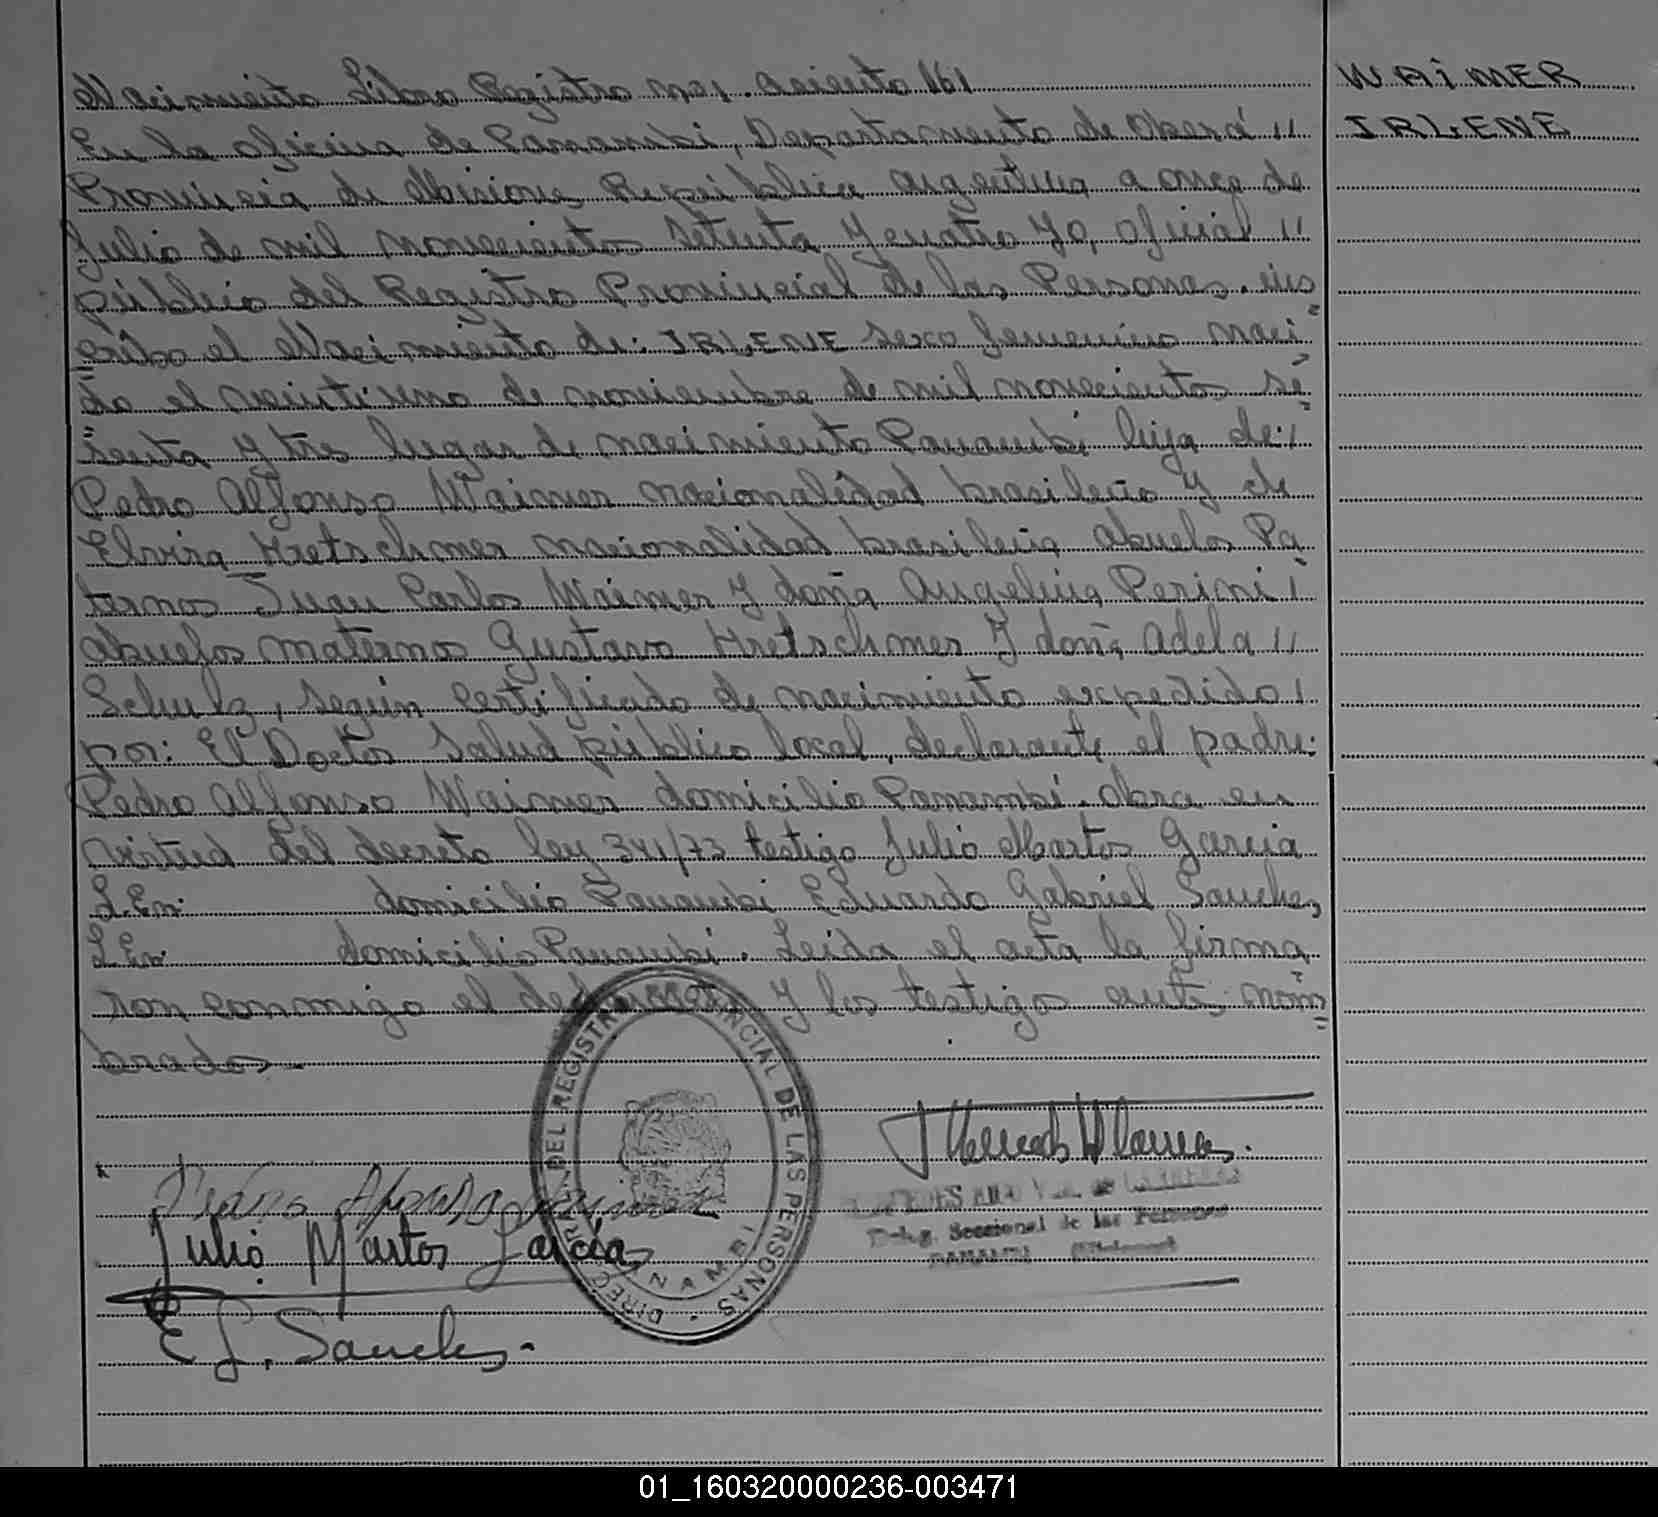 Nacimiento Libro Registro no1. asiento 161
WAIMER
IRLENE
En la oficina de Panambi, Departamento de Oberá //
Provincia de Misiones Republica argentina a once de
Julio de mil novecientos setenta y cuatro yo, oficial //
público del Registro Provincial de las Personas. ins=
cribo el Nacimiento de: IRLENE sexo femenino naci=
do el veintiuno de noviembre de mil novecientos se=
senta y tres lugar de nacimiento Panambi hija de:/
Pedro Alfonso Waimer nacionalidad brasileño y de
Elvira Kretschmer nacionalidad brasileña abuelos Pa
ternos Juan Carlos Waimer y doña Angelina Perini /
abuelos maternos Gustavo Kretschmer y doña Adela //
Schulz, según certificado de nacimiento expedido /
por: El Doctor Salud público local, declarante el padre:
Pedro Alfonso Waimer domicilio Panambi. obra en
virtud del decreto ley 341/73 testigo Julio Martos Garcia
L.En: domicilio Panambi Eduardo Gabriel Sanchez
L.En: domicilio Panambi. Leida el acta la firma
ron conmigo el y los testigos ante nom=
brados
DIREC DEL REGISTRO PROVINCIAL DE LAS PERSONAS
PANAMBI
Pedro Afonso
Julio Martos García
E G. Sanches.
Deleg. Seccional de las Personas
PANAMBI (Misiones)
01_160320000236-003471